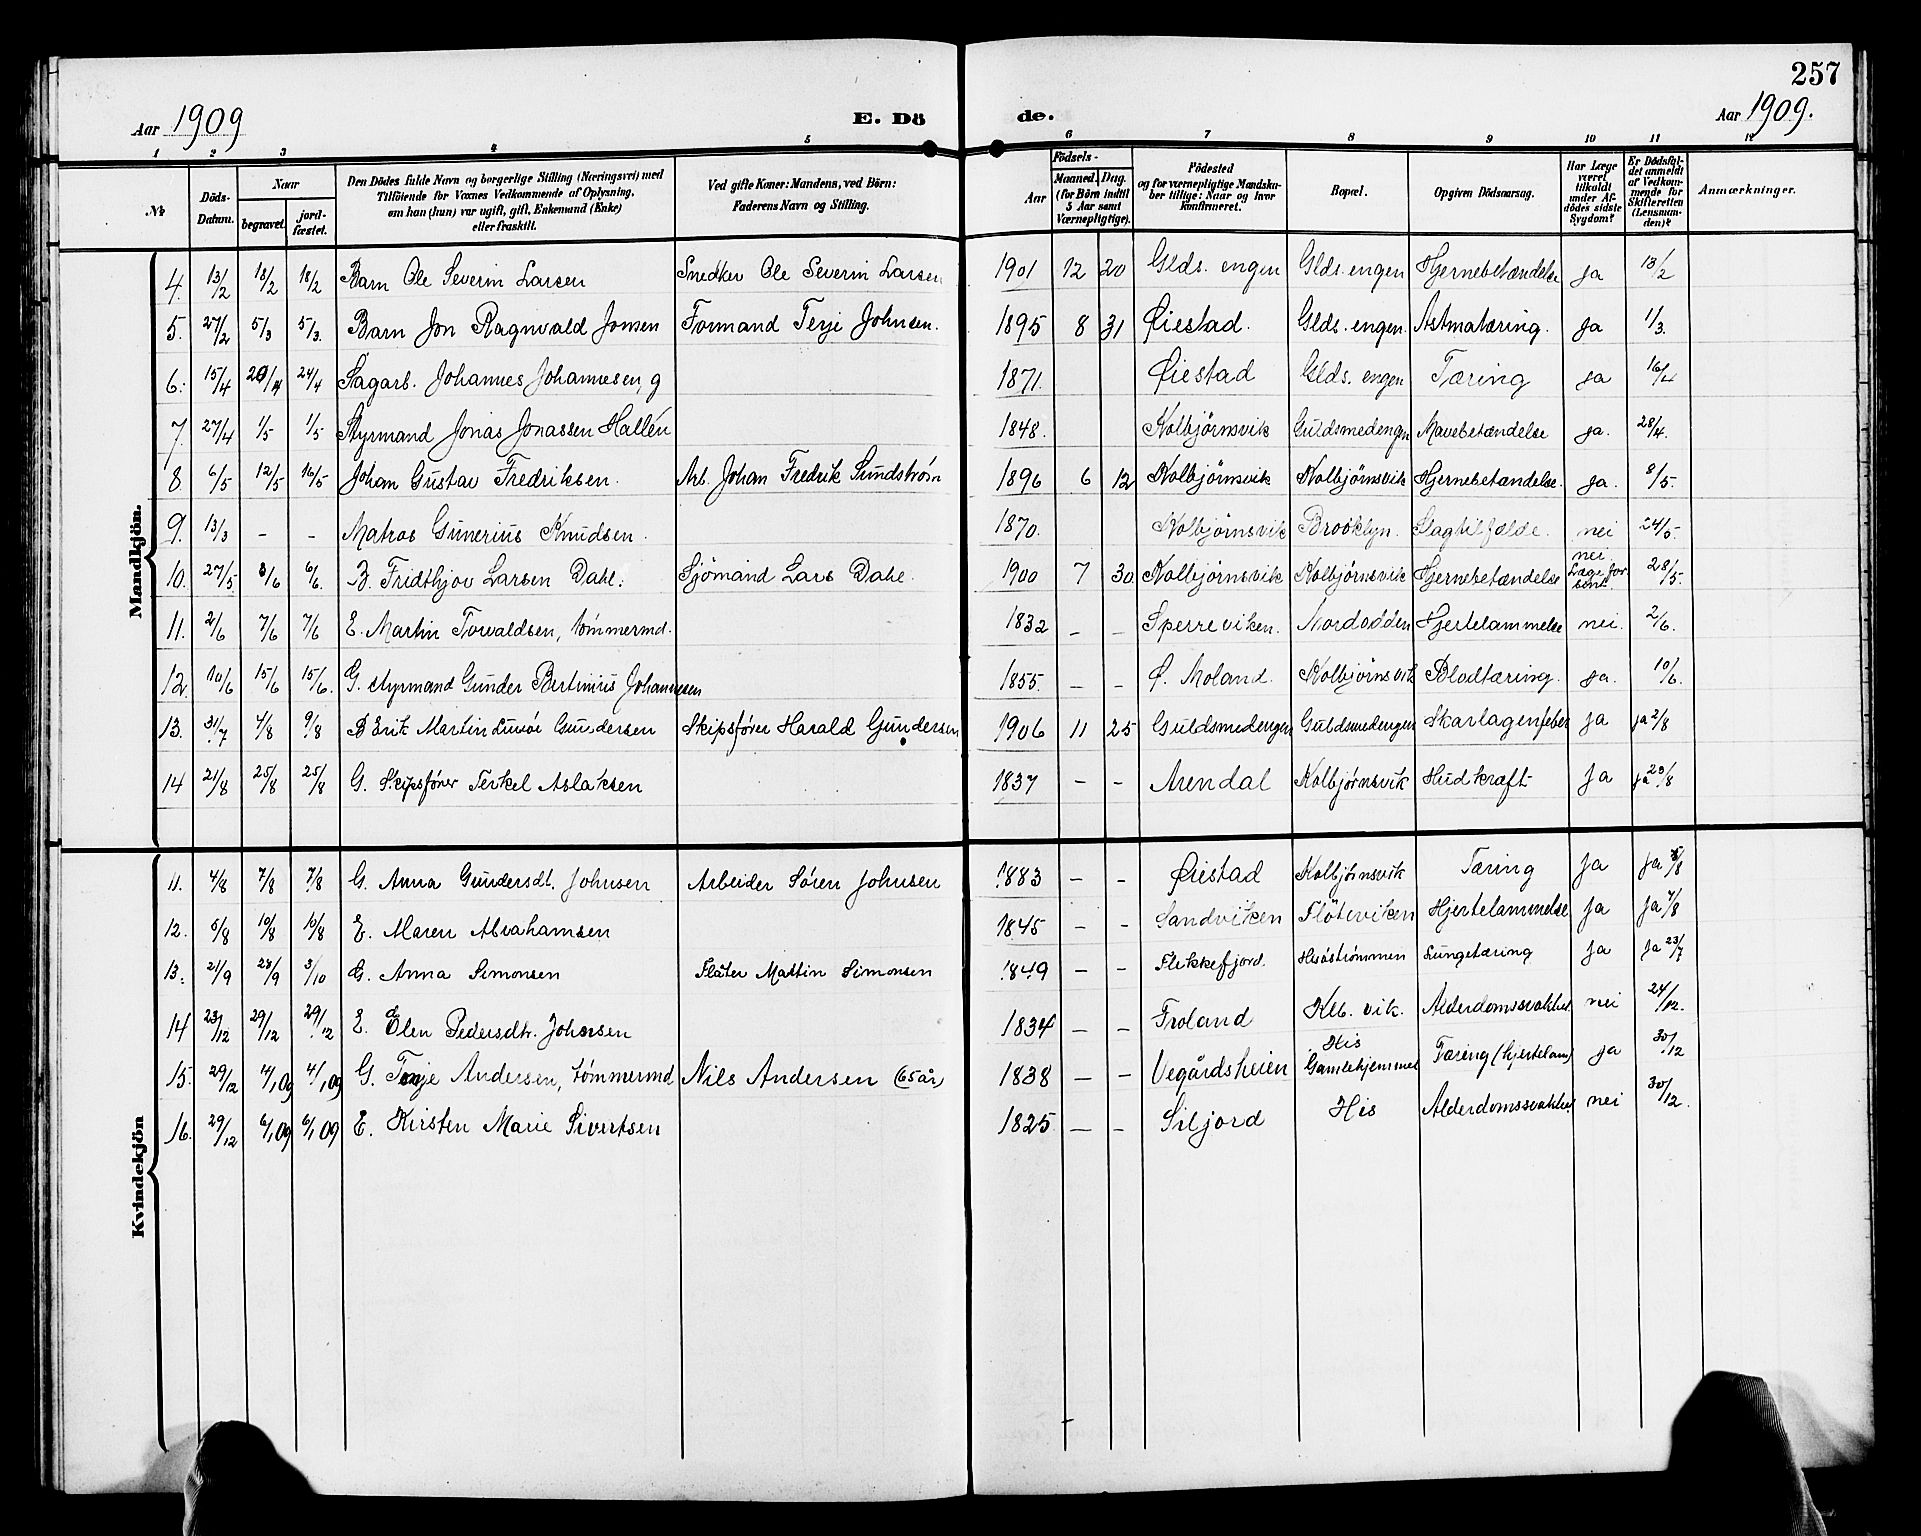 257
Aar 1909 E. Dö de. Aar 1909.
1 2 3 4 5 6 7 8 9 10 11 12
№ Döds-Datum. Naar begravet. jord-fæstet. Den Dödes fulde Navn og borgerlige Stilling (Næringsvei) med Tilföiende for Voxnes Vedkommende af Oplysning, om han (hun) var ugift, gift, Enkemand (Enke) eller fraskilt. Ved gifte Koner: Mandens, ved Börn: Faderens Navn og Stilling. Födsels- Aar Maaned. Dag. (for Börn indtil 5 Aar samt Værnepligtige). Födested og for værnepligtige Mandska-ber tillige: Naar og hvor konfirmeret. Bopæl. Opgiven Dödsaarsag. Har Læge været tilkaldt under Af-dödes sidste Sygdom? Er Dödsfal-det anmeldt af Vedkom-mende for Skifteretten (Lensman-den)? Anmærkninger.
Mandkjön.
4. 13/2 18/2 18/2 Barn Ole Severin Larsen Snedker Ole Severin Larsen 1901 12 20 Glds. engen Glds. engen Hjernebetændelse ja 13/2
5. 27/2 5/3 5/3. Barn Jon Ragnvald Jonsen Formand Terje Johnsen. 1895 8 31 Øiestad. Glds. engen. Astmatæring. ja 1/3.
6. 15/4 24/4 Sagarb. Johannes Johannesen, g 1871. Øiestad Glds. engen Tæring ja 16/4
7. 27/4 1/5 1/5 Styrmand Jonas Jonassen Hallén 1848. Kolbjørnsvik Guldsmedengen Mavebetændelse ja. 28/4.
8 6/5 12/5 16/5 Johan Gustav Fredriksen. Arb. Johan Fredrik Sundstrøm 1896 6 12 Kolbjørnsvik Kolbjørnsvik Hjernebetændelse. ja. 8/5.
9. 13/3 - - Matros Gunerius Knudsen. 1870. Kolbjørnsvik Brooklyn. Slagtilfælde. nei 24/5-
10. 27/5 6/6. B. Fridthjov Larsen Dahl. Sjömand Lars Dahl 1900 7 30 Kolbjørnsvik Kolbjørnsvik Hjernebetændelse nei Læge for sent. 28/5.
11. 2/6 7/6 7/6 E. Martin Torvaldsen, tömmermd. 1832 - - Sperreviken. Nordodden Hjertelammelse nei. 2/6.
12. 10/6 15/6 15/6. G. styrmand Gunder Bertinius Johannesen 1855. - - Ø. Moland. Kolbjørnsvik Blodtæring. ja. 10/6.
13. 31/7 4/8 9/8 B Erik Martin Gundersen Skipsfører Harald Gundersen 1906 11 25 Guldsmedengen Guldsmedengen Skarlagenfeber ja ja 2/8
14 21/8 25/8 25/8 G. Skipsfører Terkel Aslaksen 1837 - - Arendal Kolbjørnsvik Hudkræft Ja ja 23/8
Kvindekjön
11. 4/8 7/8 7/8 G. Anna Gundersdt. Johnsen Arbeider Søren Johnsen 1883 - - Øiestad Kolbjørnsvik Tæring ja ja
12. 5/8 10/8 10/8 E. Maren Abrahamsen 1845 - - Sandviken Flöteviken Hjertelammelse ja ja 7/8
13. 21/9 28/9 3/10 G. Anna Simonsen Fløter Martin Simonsen 1849 - - Flekkefjord. Hisöströmmen Lungetæring ja ja 23/7
14 23/12 29/12 29/12 E. Elen Pedersdtr. Johnsen 1834 - - Froland Klb. vik. Alderdomssvakhet nei 24/12.
15. 29/12 4/1 09 4/1 09 G. Terje Andersen, tömmermd Nils Andersen (65 år) 1838 - - Vegårdsheien His Gamlehjemmet Tæring (hjertelam) ja 30/12
16. 29/12 6/1 09 6/1 09 E. Kirsten Marie Sivertsen 1825 - - Siljord His Alderdomssvakhet nei 30/12.